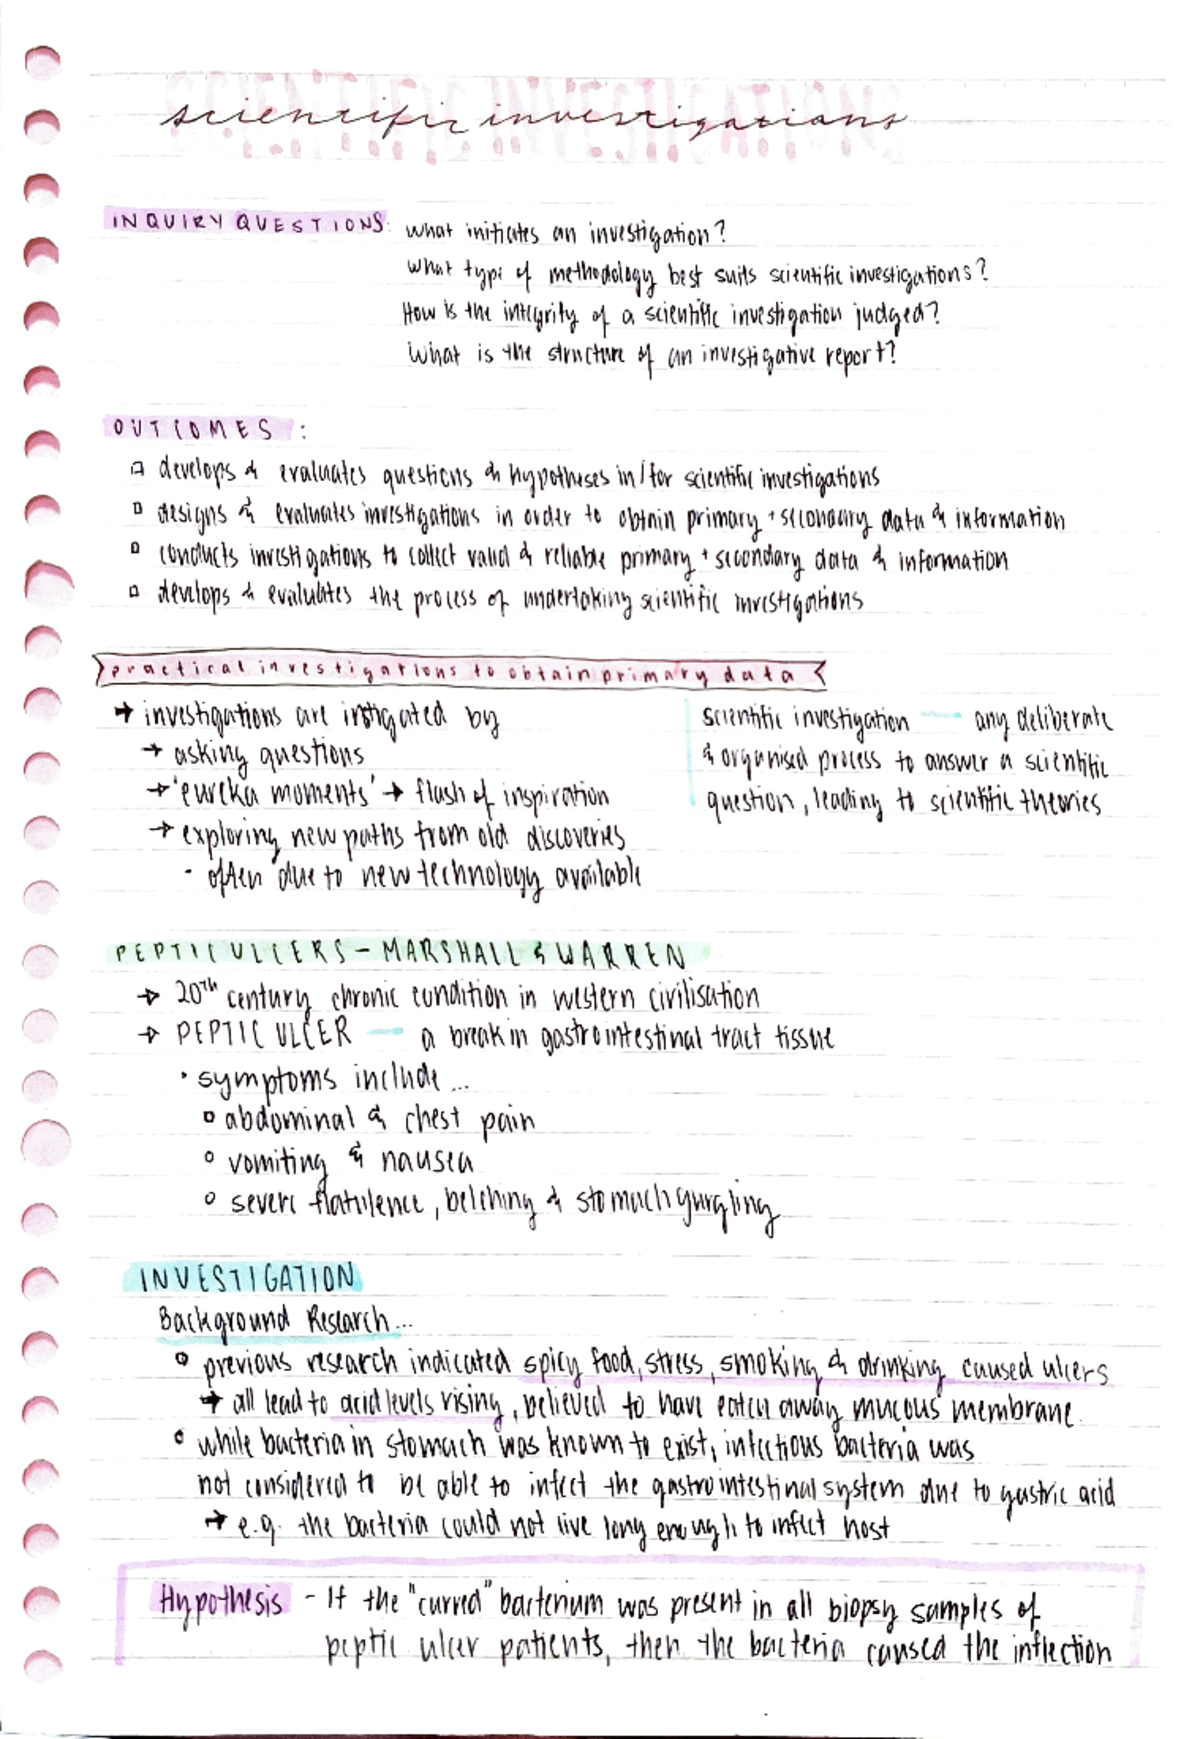 SCIENTIFIC INVESTIGATIONS
scientific investigations
INQUIRY QUESTIONS: what initiates an investigation?
what type of methodology best suits scientific investigations?
How is the integrity of a scientific investigation judged?
What is the structure of an investigative report?
OUTCOMES :
develops & evaluates questions & hypotheses in/for scientific investigations
designs & evaluates investigations in order to obtain primary + secondary data & information
conducts investigations to collect valid & reliable primary + secondary data & information
develops & evalulates the process of undertaking scientific investigations
practical investigations to obtain primary data
→ investigations are instigated by
→ asking questions
→ 'eureka moments' → flash of inspiration
→ exploring new paths from old discoveries
- often due to new technology available
scientific investigation — any deliberate
& organised process to answer a scientific
question, leading to scientific theories
PEPTIC ULCERS - MARSHALL & WARREN
→ 20th century chronic condition in western civilisation
→ PEPTIC ULCER — a break in gastrointestinal tract tissue
• symptoms include...
abdominal & chest pain
vomiting & nausea
severe flatulence, belching & stomach gurgling
INVESTIGATION
Background Research...
previous research indicated spicy food, stress, smoking & drinking caused ulcers
→ all lead to acid levels rising, believed to have eaten away mucous membrane.
while bacteria in stomach was known to exist, infectious bacteria was
not considered to be able to infect the gastrointestinal system due to gastric acid
→ e.g. the bacteria could not live long enough to infect host
Hypothesis - If the "curved" bacterium was present in all biopsy samples of
peptic ulcer patients, then the bacteria caused the inflection